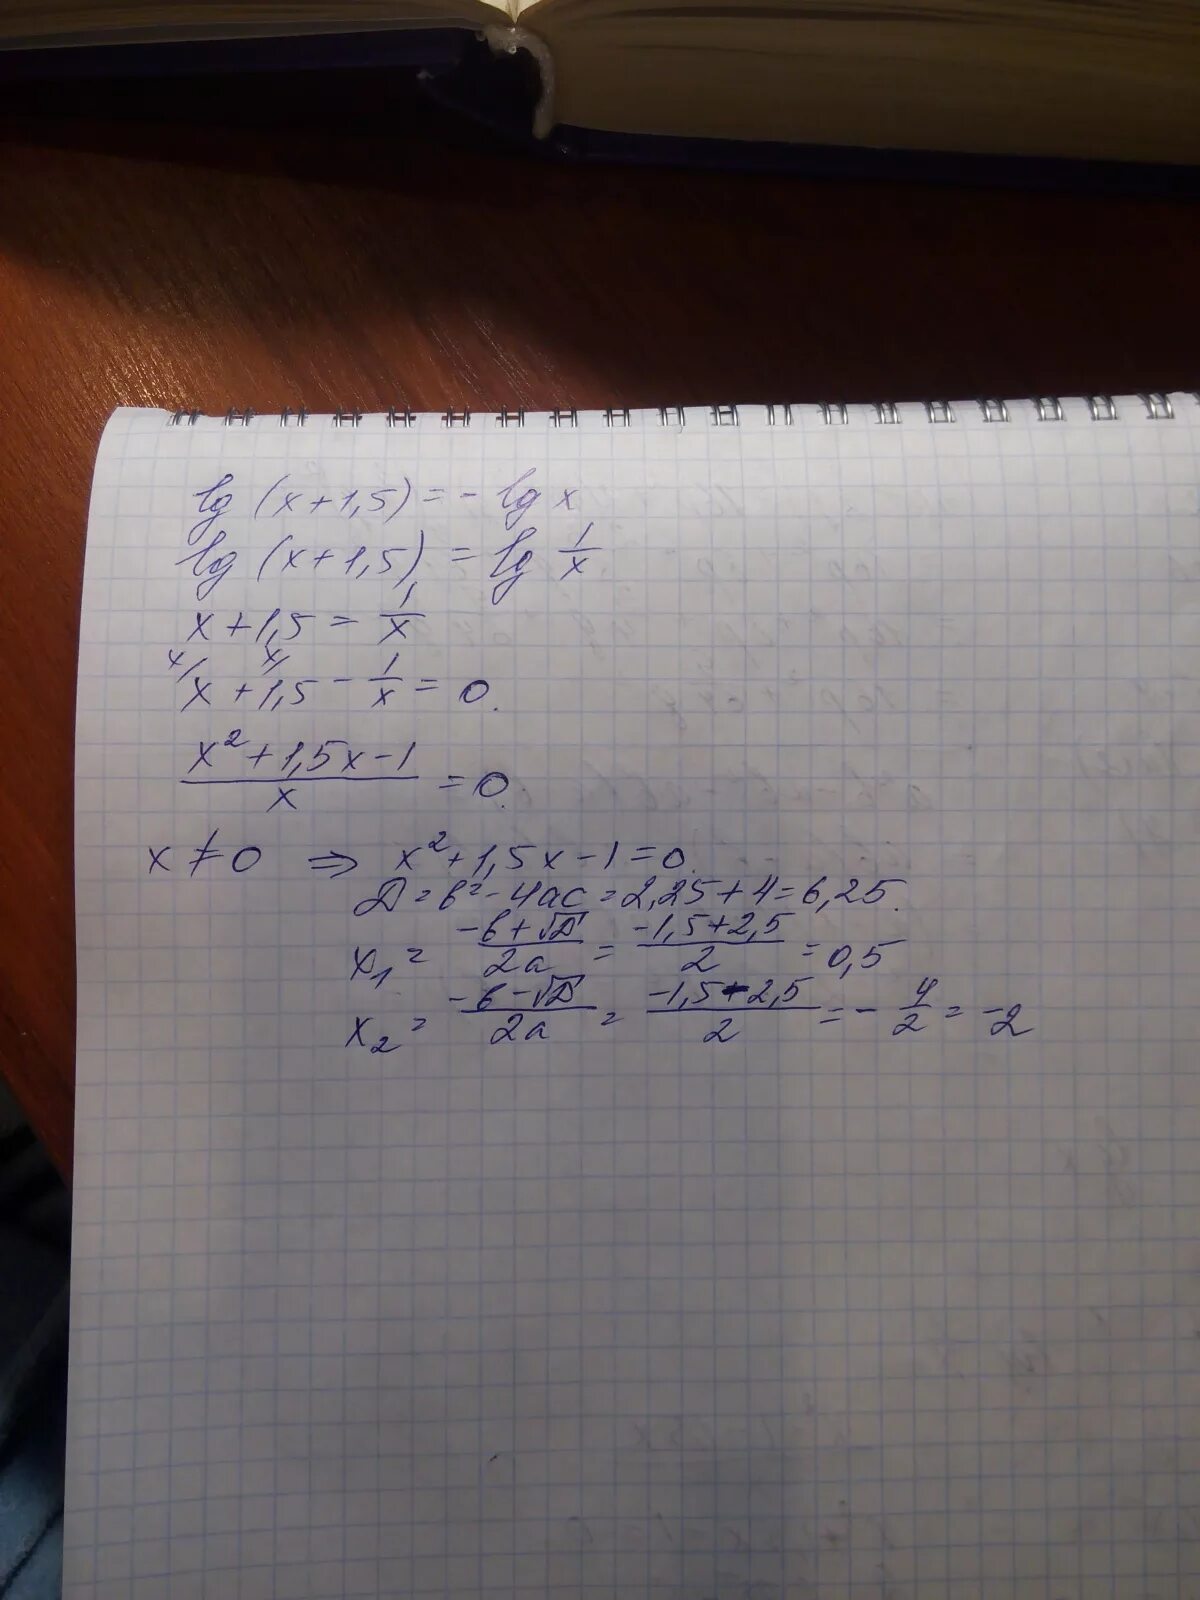 lg (x+1,5) = - lg x
lg (x+1,5) = lg 1/x
x + 1,5 = 1/x
x/ x/
x + 1,5 - 1/x = 0.
(x² + 1,5x - 1)/x = 0.
x ≠ 0 ⇒ x² + 1,5x - 1 = 0.
D = b² - 4ac = 2,25 + 4 = 6,25.
x₁ = (-b + √D)/2a = (-1,5 + 2,5)/2 = 0,5
x₂ = (-b - √D)/2a = (-1,5 - 2,5)/2 = - 4/2 = -2